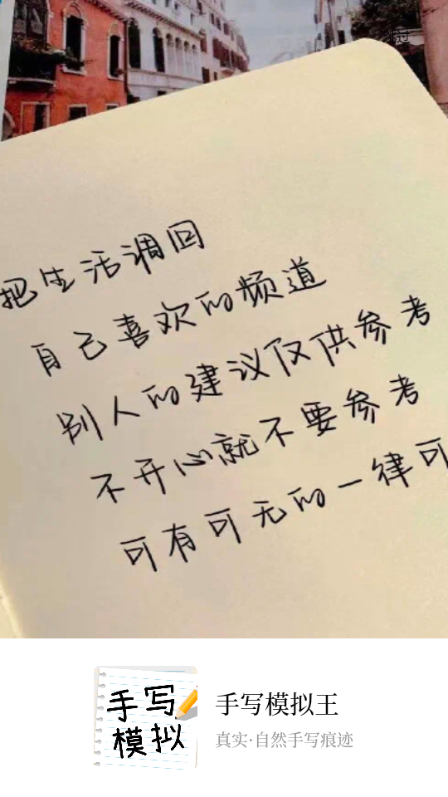 把生活调回
自己喜欢的频道
别人的建议仅供参考
不开心就不要参考
可有可无的一律可
手写
模拟
手写模拟王
真实·自然手写痕迹